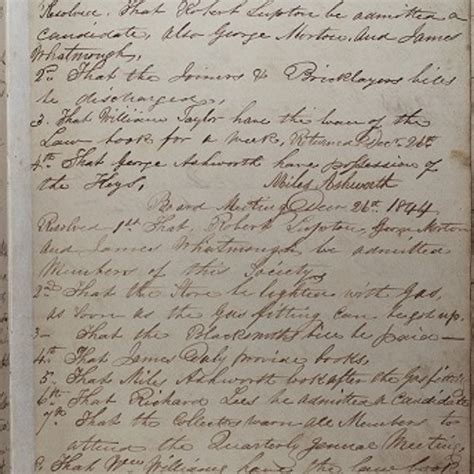 Resolved. That Robert Lupton be admitted a
candidate, also George Morton. And James
Whatmough,
2nd That the Joiners & Bricklayers bills
be discharged,
3. That William Taylor have the loan of the
Law book for a week, Returned Decr 26th
4th That George Ashworth have possession of
the Keys,
Miles Ashworth
Board Meeting Decr 26th 1844
Resolved 1st That, Robert Lupton, George Morton
And James Whatmough be admitted
Members of this Society
2nd That the Store be lighten with Gas,
as soon as the Gas fitting can be got up.
3— That the Blacksmiths bill be paid—
4th That James Daly provide books,
5. That Miles Ashworth look after the Gas fitters
6th That Richard Lees be admitted a Candidate
7th That the Collectors warn all Members to
attend the Quarterly General Meeting
8. That Wm Williams have the law book